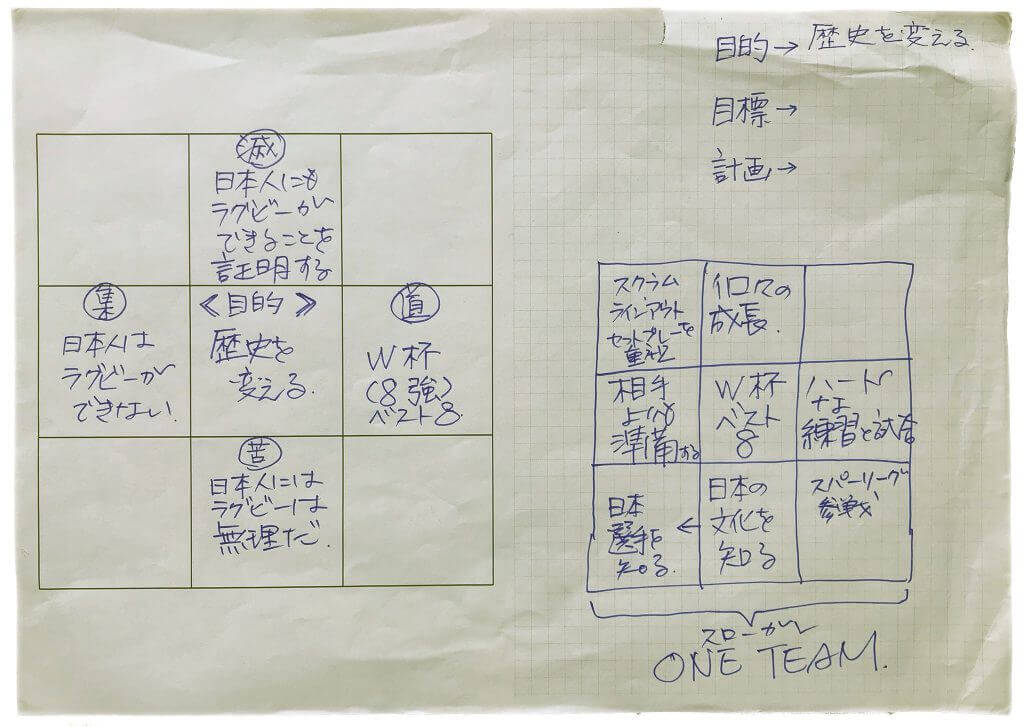 目的→ 歴史を変える.
目標→
計画→
滅
日本人にも
ラグビーが
できることを
証明する
集
日本人は
ラグビーが
できない.
《目的》
歴史を
変える.
道
W杯
(8強)
ベスト8.
苦
日本人には
ラグビーは
無理だ.
スクラム
ラインアウト
セットプレーを
重視
個々の
成長.
相手
よりも
準備する
W杯
ベスト
8
ハード
な
練習と試合
日本
選手を
知る.
←
日本の
文化を
知る
スパーリーグ
参戦
スローガン
ONE TEAM.